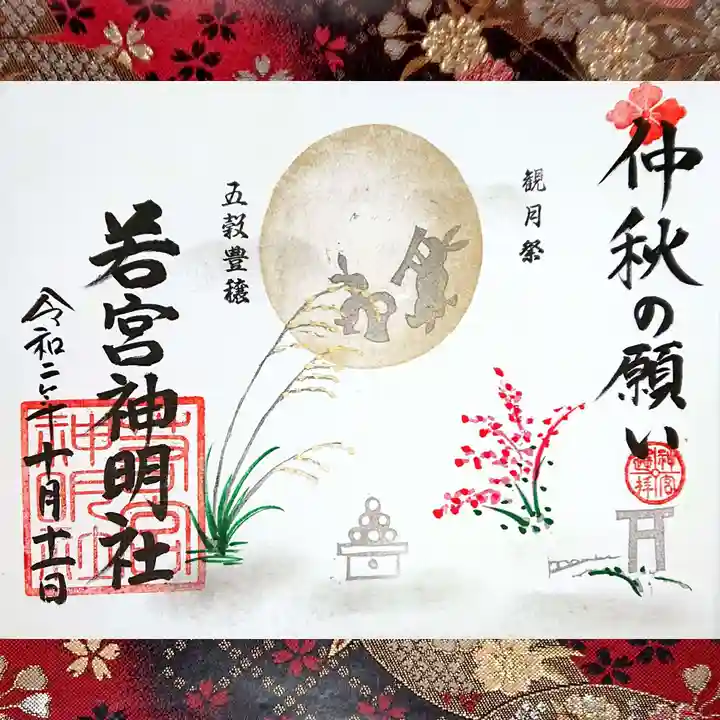 仲秋の願い
神宮遙拝
観月祭
五穀豊穣
若宮神明社
令和二年十月十一日